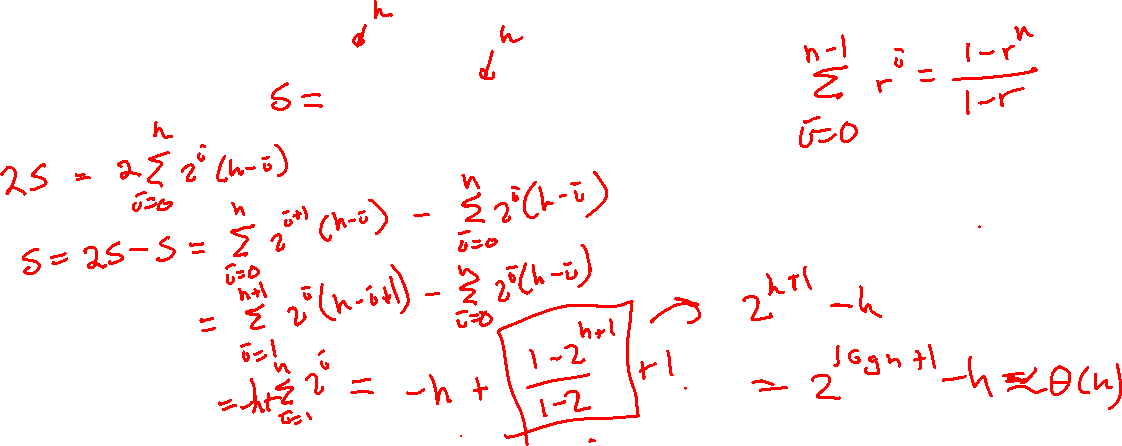 h
h
S =
\sum_{i=0}^{n-1} r^i = \frac{1-r^n}{1-r}
2S = 2\sum_{i=0}^{h} 2^i (h-i)
S = 2S - S = \sum_{i=0}^{h} 2^{i+1} (h-i) - \sum_{i=0}^{h} 2^i (h-i)
= \sum_{i=1}^{h+1} 2^i (h-i+1) - \sum_{i=0}^{h} 2^i (h-i)
= -h + \sum_{i=1}^{h} 2^i = -h + \frac{1-2^{h+1}}{1-2} + 1
2^{h+1} - h
= 2^{\log n+1} - h = \Theta(n)